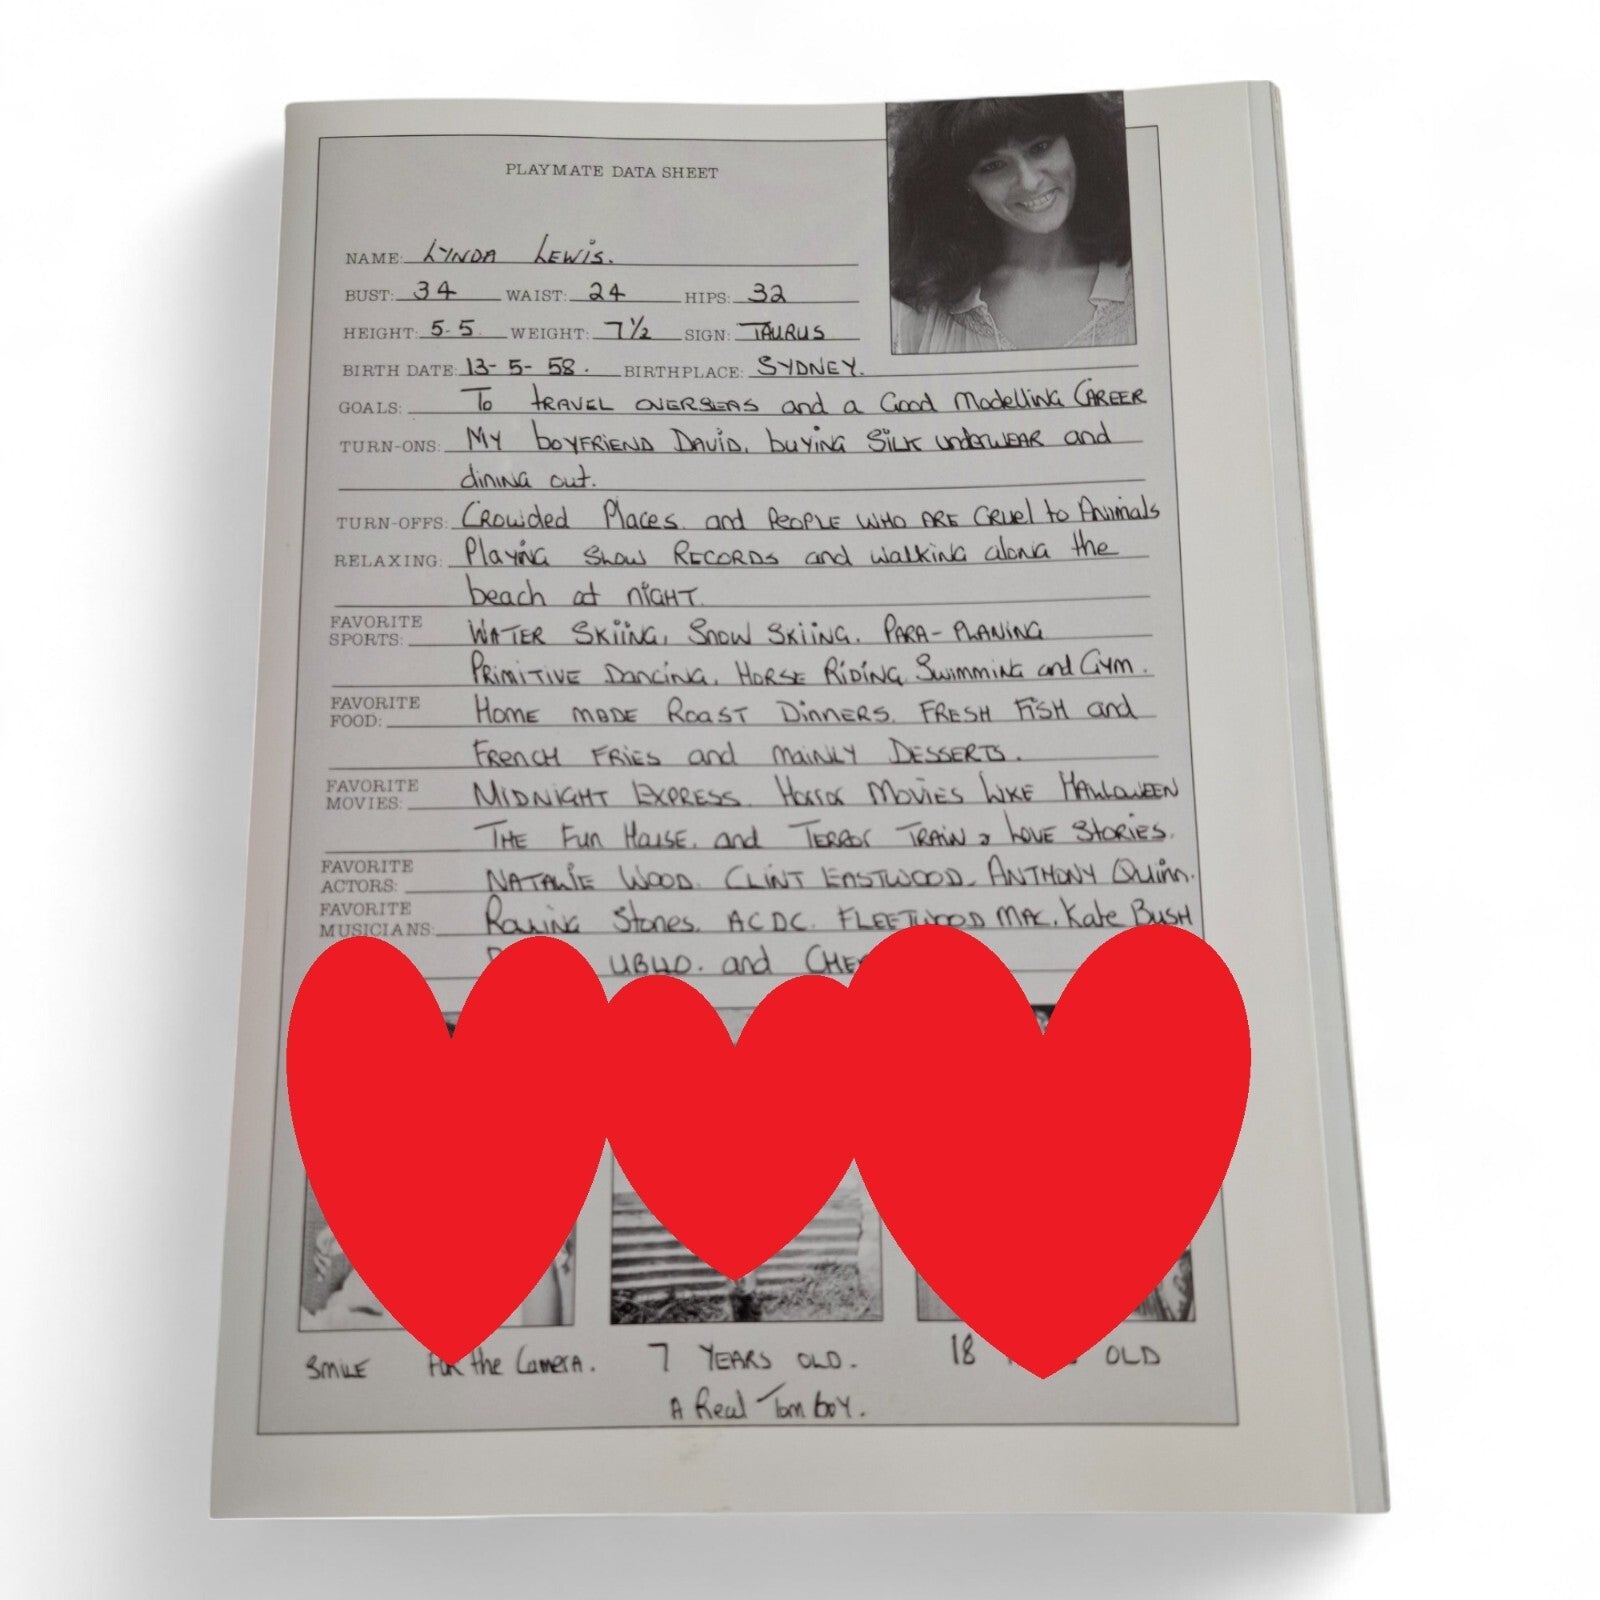 PLAYMATE DATA SHEET
NAME: LYNDA LEWIS.
BUST: 34 WAIST: 24 HIPS: 32
HEIGHT: 5-5. WEIGHT: 7½ SIGN: TAURUS
BIRTH DATE: 13-5-58. BIRTHPLACE: SYDNEY.
GOALS: To TRAVEL OVERSEAS and a Good Modelling CAREER
TURN-ONS: MY boyFRIEND DAVID, buying SILK underWEAR and
dining out.
TURN-OFFS: CROWded Places. and PEOPLE WHO ARE CRUEL to Animals
RELAXING: Playing Show RECORDS and walking along the
beach at NIGHT.
FAVORITE
SPORTS: WATER SKIING, SNOW SKIING. PARA-PLANING
PRIMITIVE Dancing, HORSE RIDING, Swimming and Gym.
FAVORITE
FOOD: HOME MADE ROAST DINNERS. FRESH FISH and
FRENCH FRIES and MAINLY DESSERTS.
FAVORITE
MOVIES: MIDNIGHT EXPRESS. Horror MOVIES LIKE HALLOWEEN
THE FUN HOUSE, and TERROR TRAIN & LOVE STORIES.
FAVORITE
ACTORS: NATALIE WOOD. CLINT EASTWOOD. ANTHONY Quinn.
FAVORITE
MUSICIANS: ROLLING Stones. AC DC. FLEETWOOD MAC. Kate BUSH
UB40. and
SMILE FOR the CAMERA. 7 YEARS OLD. 18 OLD
A Real Tom boy.